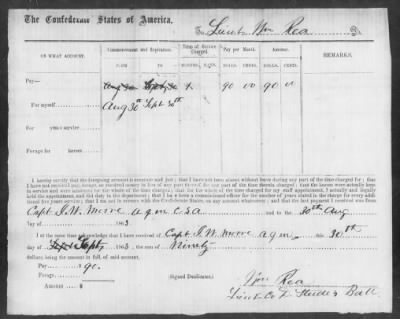 The Confederate States of America,
To Lieut Wm Rea Dr.
ON WHAT ACCOUNT. Commencement and Expiration. Term of Service Charged. Pay per Month. Amount. REMARKS.
FROM TO MONTHS. DAYS. DOLLS. CENTS. DOLLS. CENTS.
Pay—
Aug 30 Sept 30 1 90 00 90 00
For myself
Aug 30th Sept 30th
years service
Forage for horses
I hereby certify that the foregoing account is accurate and just; that I have not been absent without leave during any part of the time charged for; that
I have not received pay, forage, or received money in lieu of any part thereof for any part of the time therein charged; that the horses were actually kept
in service and were mustered for the whole of the time charged; that for the whole of the time charged for my staff appointment, I actually and legally
held the appointment, and did duty in the department; that I have been a commissioned officer for the number of years stated in the charge for every addi-
tional five years service; that I am not in arrears with the Confederate States, on any account whatsoever; and that the last payment I received was from
Capt J. W. Moore a q m C S A and to the 30th Aug
day of 1863.
I at the same time acknowledge that I have received of Capt J. W. Moore a q m this 30th
day of Sept 1863, the sum of Ninety
dollars, being the amount, in full, of said account.
Pay $ 90.
Forage
Amount $
(Signed Duplicates.)
Wm Rea
Lieut Co